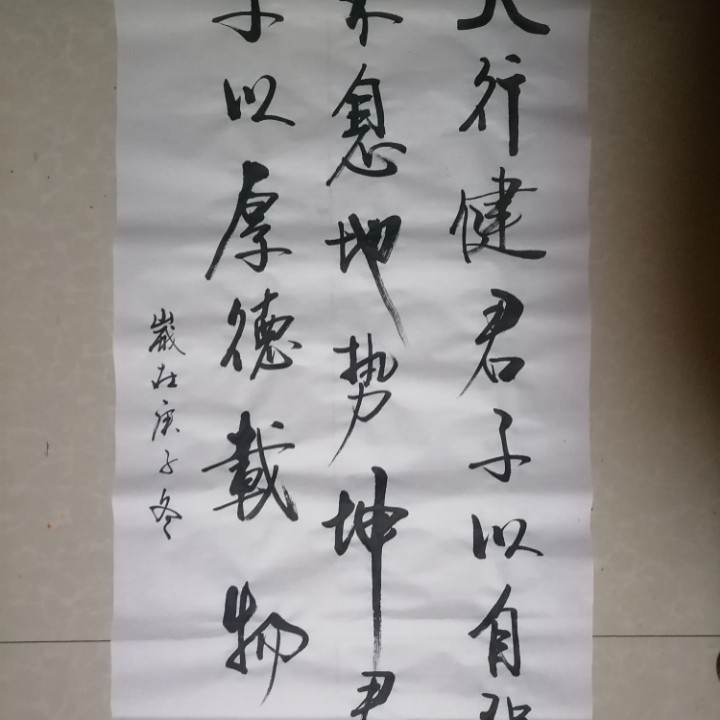 天行健君子以自强
不息地势坤君
子以厚德載物
歲在庚子冬